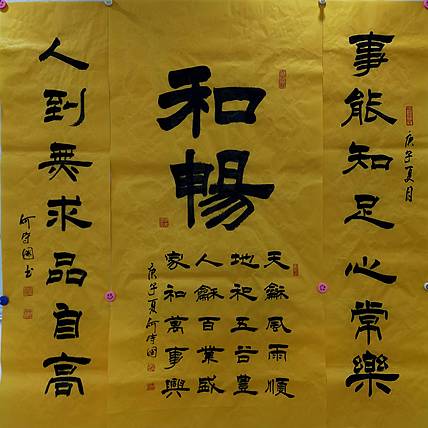 事能知足心常樂
庚子夏月
和暢
天龢風雨順
地和五谷豊
人龢百業盛
家和萬事興
庚子夏何守國
人到無求品自高
何守國书